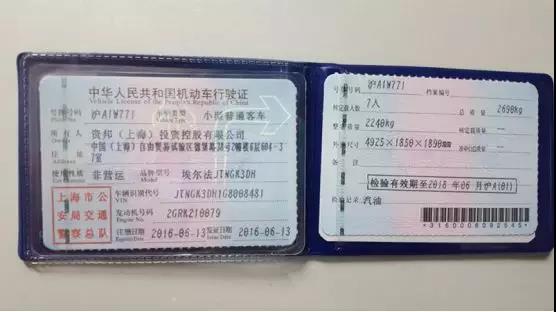 中华人民共和国机动车行驶证
Vehicle License of the People's Republic of China
号牌号码 沪A1W771 车辆类型 小型普通客车
所有人 资邦（上海）投资控股有限公司
住址 中国（上海）自由贸易试验区
Address
使用性质 非营运 品牌型号 埃尔法JTNGK3DH
车辆识别代号 JTNGK3DH1G8008481
VIN
发动机号码 2GRK210079
Engine No.
注册日期 2016-06-13 发证日期 2016-06-13
Issue Date
上海市公
安局交通
警察总队
号牌号码 沪A1W771 档案编号
核定载人数 7人 总质量 2690kg
整备质量 2240kg 核定载质量
外廓尺寸 4925×1850×1890mm
检验有效期至2018年06月沪A(01)
检验记录 汽油